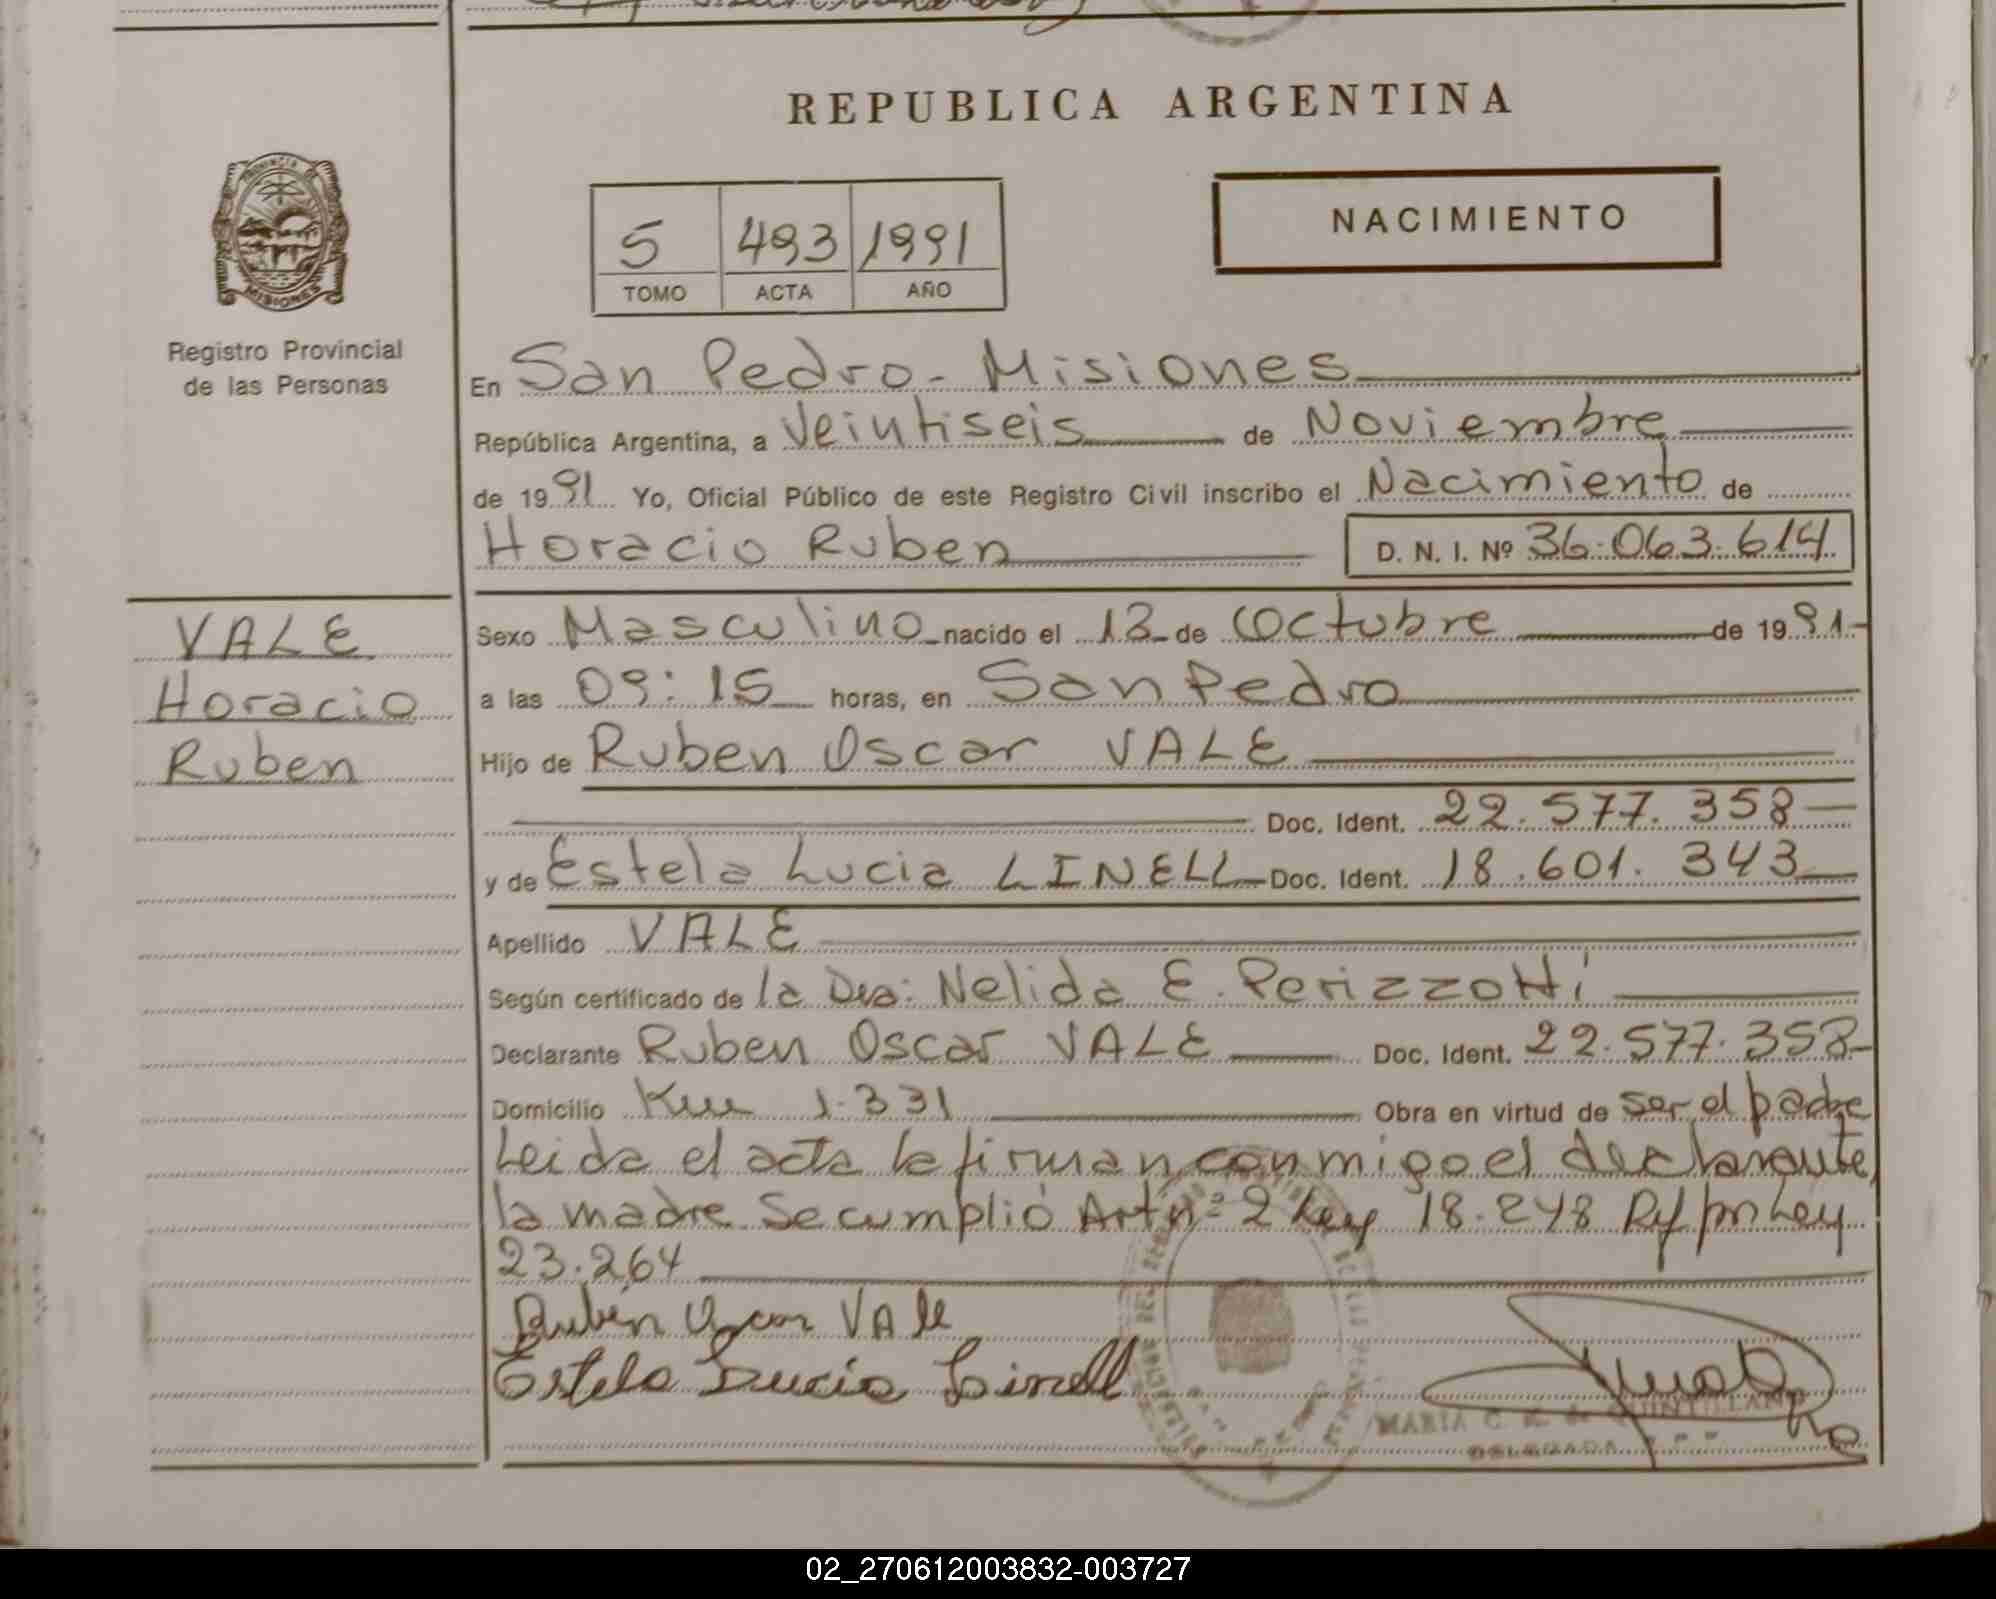 REPUBLICA ARGENTINA
PROVINCIA DE
MISIONES
Registro Provincial
de las Personas
5 493 1991
TOMO ACTA AÑO
NACIMIENTO
En San Pedro - Misiones
República Argentina, a Veintiseis de Noviembre
de 1991 Yo, Oficial Público de este Registro Civil inscribo el Nacimiento de
Horacio Ruben D. N. I. Nº 36.063.614
VALE
Horacio
Ruben
Sexo Masculino nacido el 13 de Octubre de 1991.-
a las 09:15 horas, en San Pedro
Hijo de Ruben Oscar VALE
Doc. Ident. 22.577.358
y de Estela Lucia LINELL Doc. Ident. 18.601.343
Apellido VALE
Según certificado de la Dra: Nelida E. Perizzotti
Declarante Ruben Oscar VALE Doc. Ident. 22.577.358
Domicilio Km 1.331 Obra en virtud de ser el padre
Leida el acta la firman conmigo el declarante,
la madre Se cumplió Art nº 2 Ley 18.248 Ley
23.264
Ruben Oscar VAle
Estela Lucia Linell
MARIA C. de QUINTILLAN
DELEGADA
02_270612003832-003727